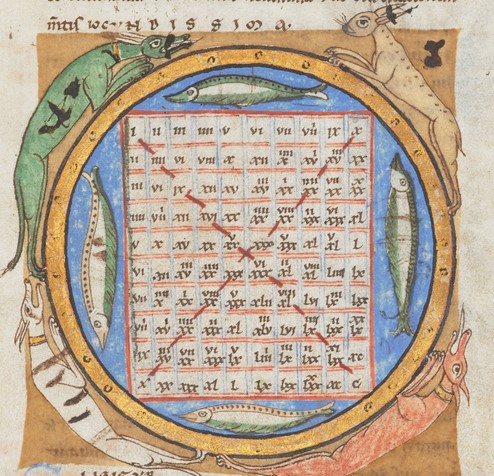 mitis iocUNDISSIMA.
i ii iii iiii v vi vii viii ix x
ii iiii vi viii x xii xiiii xvi xviii xx
iii vi ix xii xv xviii xxi xxiiii xxvii xxx
iiii viii xii xvi xx xxiiii xxviii xxxii xxxvi xl
v x xv xx xxv xxx xxxv xl xlv l
vi xii xviii xxiiii xxx xxxvi xlii xlviii liiii lx
vii xiiii xxi xxviii xxxv xlii xlviiii lvi lxiii lxx
viii xvi xxiiii xxxii xl xlviii lvi lxiiii lxxii lxxx
ix xviii xxvii xxxvi xlv liiii lxiii lxxii lxxxi xc
x xx xxx xl l lx lxx lxxx xc c